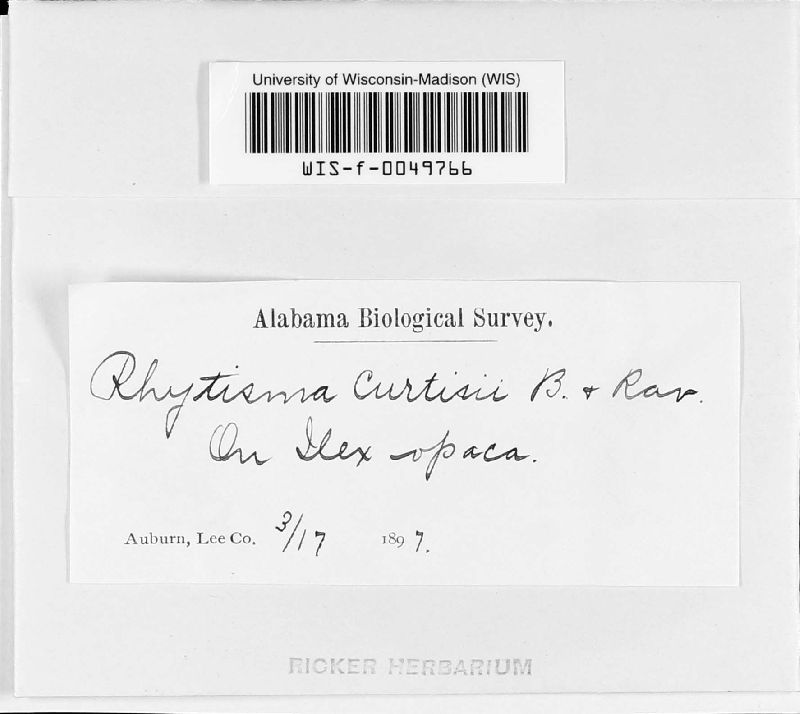 University of Wisconsin-Madison (WIS)
WIS-f-0049766
Alabama Biological Survey.
Rhytisma Curtisii B. & Rav.
On Ilex opaca.
Auburn, Lee Co. 3/17 1897.
RICKER HERBARIUM